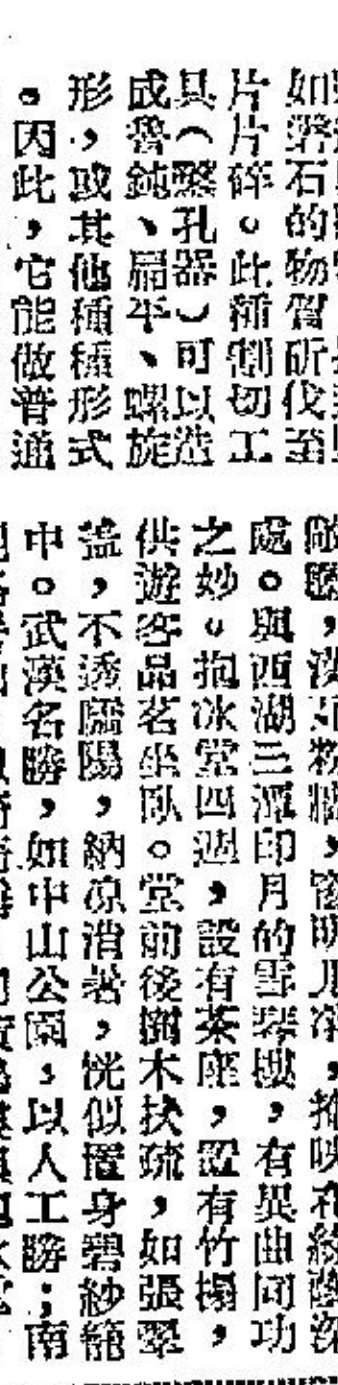 如磐石的物質斫伐至
片片碎。此種割切工
具（鑿孔器）可以造
成魯鈍、扁平、螺旋
形，或其他種種形式
。因此，它能做普通
處。與西湖三潭印月的雪琴樓，有異曲同功
之妙。抱冰堂四週，設有茶座，置有竹榻，
供遊客品茗坐臥。堂前後樹木扶疏，如張翠
蓋，不透驕陽，納凉消暑，恍似置身碧紗籠
中。武漢名勝，如中山公園，以人工勝；南